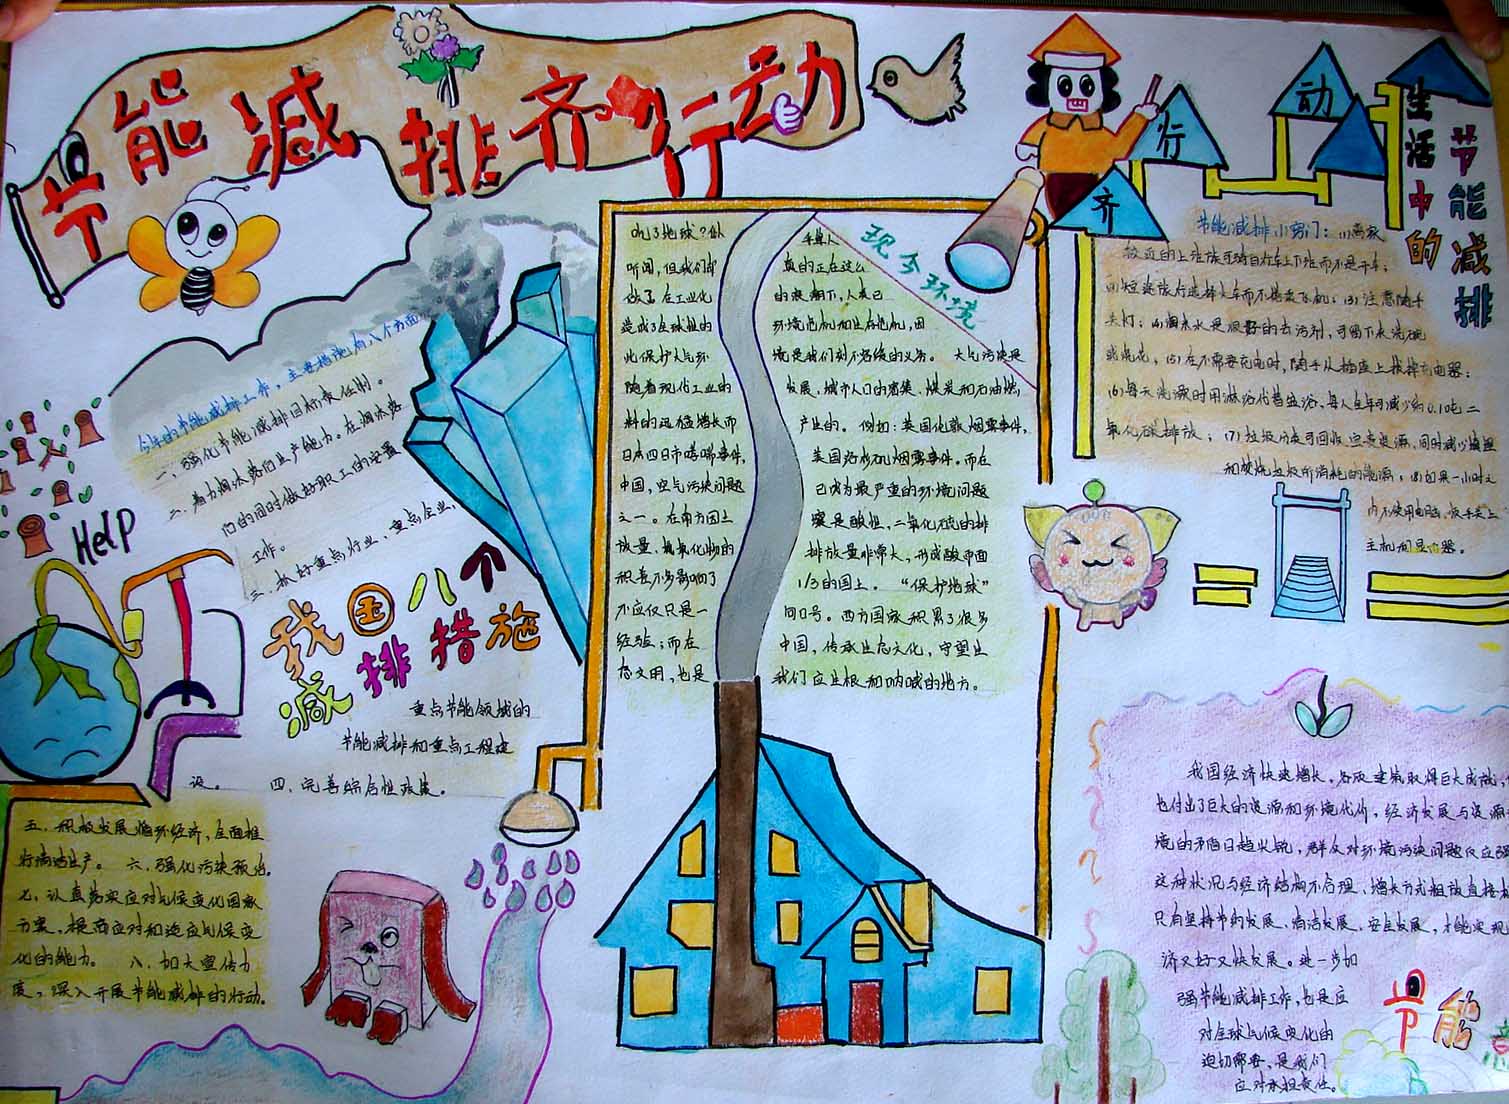 节能减排齐行动
齐
行
动
生活中的
节能减排
节能减排小窍门：(1)离家
较近的上班族可骑自行车上下班而不是开车；
(2)短途旅行选择火车而不搭乘飞机；(3)注意随手
关灯；(4)淘米水是很好的去污剂，可留下来洗碗
或浇花，(5)在不需要充电时，随手从插座上拔掉充电器；
(6)每天洗澡时用淋浴代替盆浴，每人全年可减少约0.10吨二
氧化碳排放；(7)垃圾分类可回收宝贵资源，同时减少填埋
和焚烧垃圾所消耗的能源；(8)如果一小时之
内不使用电脑，顺手关上
主机和显示器。
现今环境
吼了地球？似
听闻，但我们却
做了。在工业化
造成了全球性的
此保护大气环
随着现代工业的
料的迅猛增长而
日本四日市哮喘事件，
中国，空气污染问题
之一。在南方国土
放量、氮氧化物的
积差不多影响了
不应仅只是一
经验；而在
态文明，也是
真的正在这么
的浪潮下，人类已
环境危机和生存危机，因
境是我们刻不容缓的义务。 大气污染是
发展、城市人口的密集、煤炭和石油燃
产生的。 例如：英国伦敦烟雾事件，
美国洛杉矶烟雾事件。而在
已成为最严重的环境问题
壤是酸性，二氧化硫的排
排放量非常大，形成酸雨面
1/3的国土。 “保护地球”
句口号。西方国家积累了很多
中国，传承生态文化，守望生
我们应生根和呐喊的地方。
今年的节能减排工作，主要措施有八个方面
一、强化节能减排目标责任制。
二、着力淘汰落后生产能力。在淘汰落
后的同时做好职工的安置
工作。
三、抓好重点行业、重点企业，
重点节能领域的
节能减排和重点工程建
设。 四、完善综合性政策。
Help
我国八个
减排措施
五、积极发展循环经济，全面推
行清洁生产。 六、强化污染预治。
七、认真落实应对气候变化国家
方案，提高应对和适应气候变
化的能力。 八、加大宣传力
度，深入开展节能减排的行动。
我国经济快速增长，各项建筑取得巨大成就，
也付出了巨大的资源和环境代价，经济发展与资源
境的矛盾日趋尖锐，群众对环境污染问题反应强
这种状况与经济结构不合理、增长方式粗放直接
只有坚持节约发展、清洁发展、安全发展，才能实现
济又好又快发展。进一步加
强节能减排工作，也是应
对全球气候变化的
迫切需要，是我们
应对承担责任。
节能